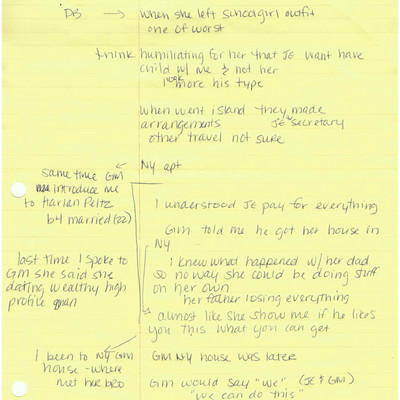 PB → when she left schoolgirl outfit
one of worst
think humiliating for her that JE want have
child w/ me & not her
look more his type
when went island they made
arrangements JE secretary
other travel not sure
NY apt
same time GM
introduce me
to Harlan Peltz
b4 married (22)
I understood JE pay for everything
GM told me he got her house in
NY
I knew what happened w/ her dad
so no way she could be doing stuff
on her own
her father losing everything
last time I spoke to
GM she said she
dating wealthy high
profile man
almost like she show me if he likes
you this what you can get
I been to NY GM
house - where
met her bro
GM NY house was later
GM would say "we" (JE & GM)
"we can do this"